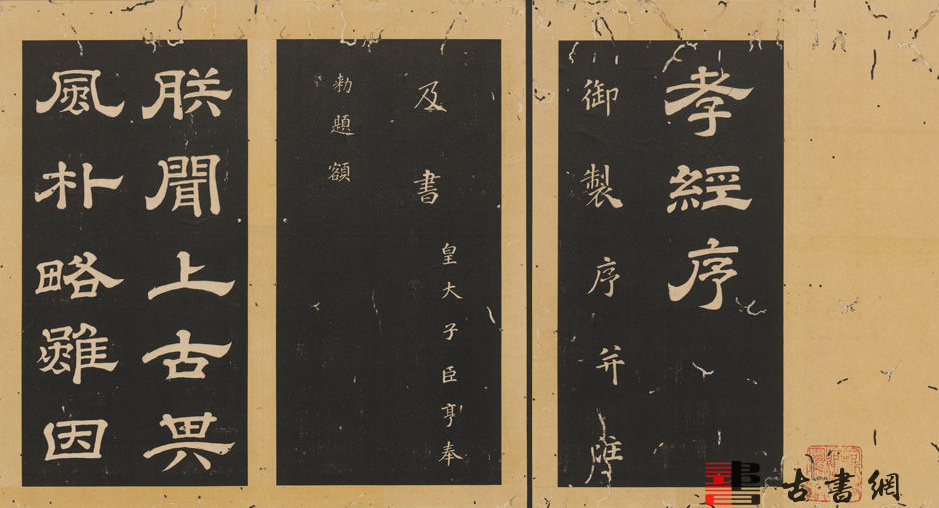 孝經序
御製序并注
及書
皇大子臣亨奉
勅題額
朕聞上古其
風朴略雖因
古書網